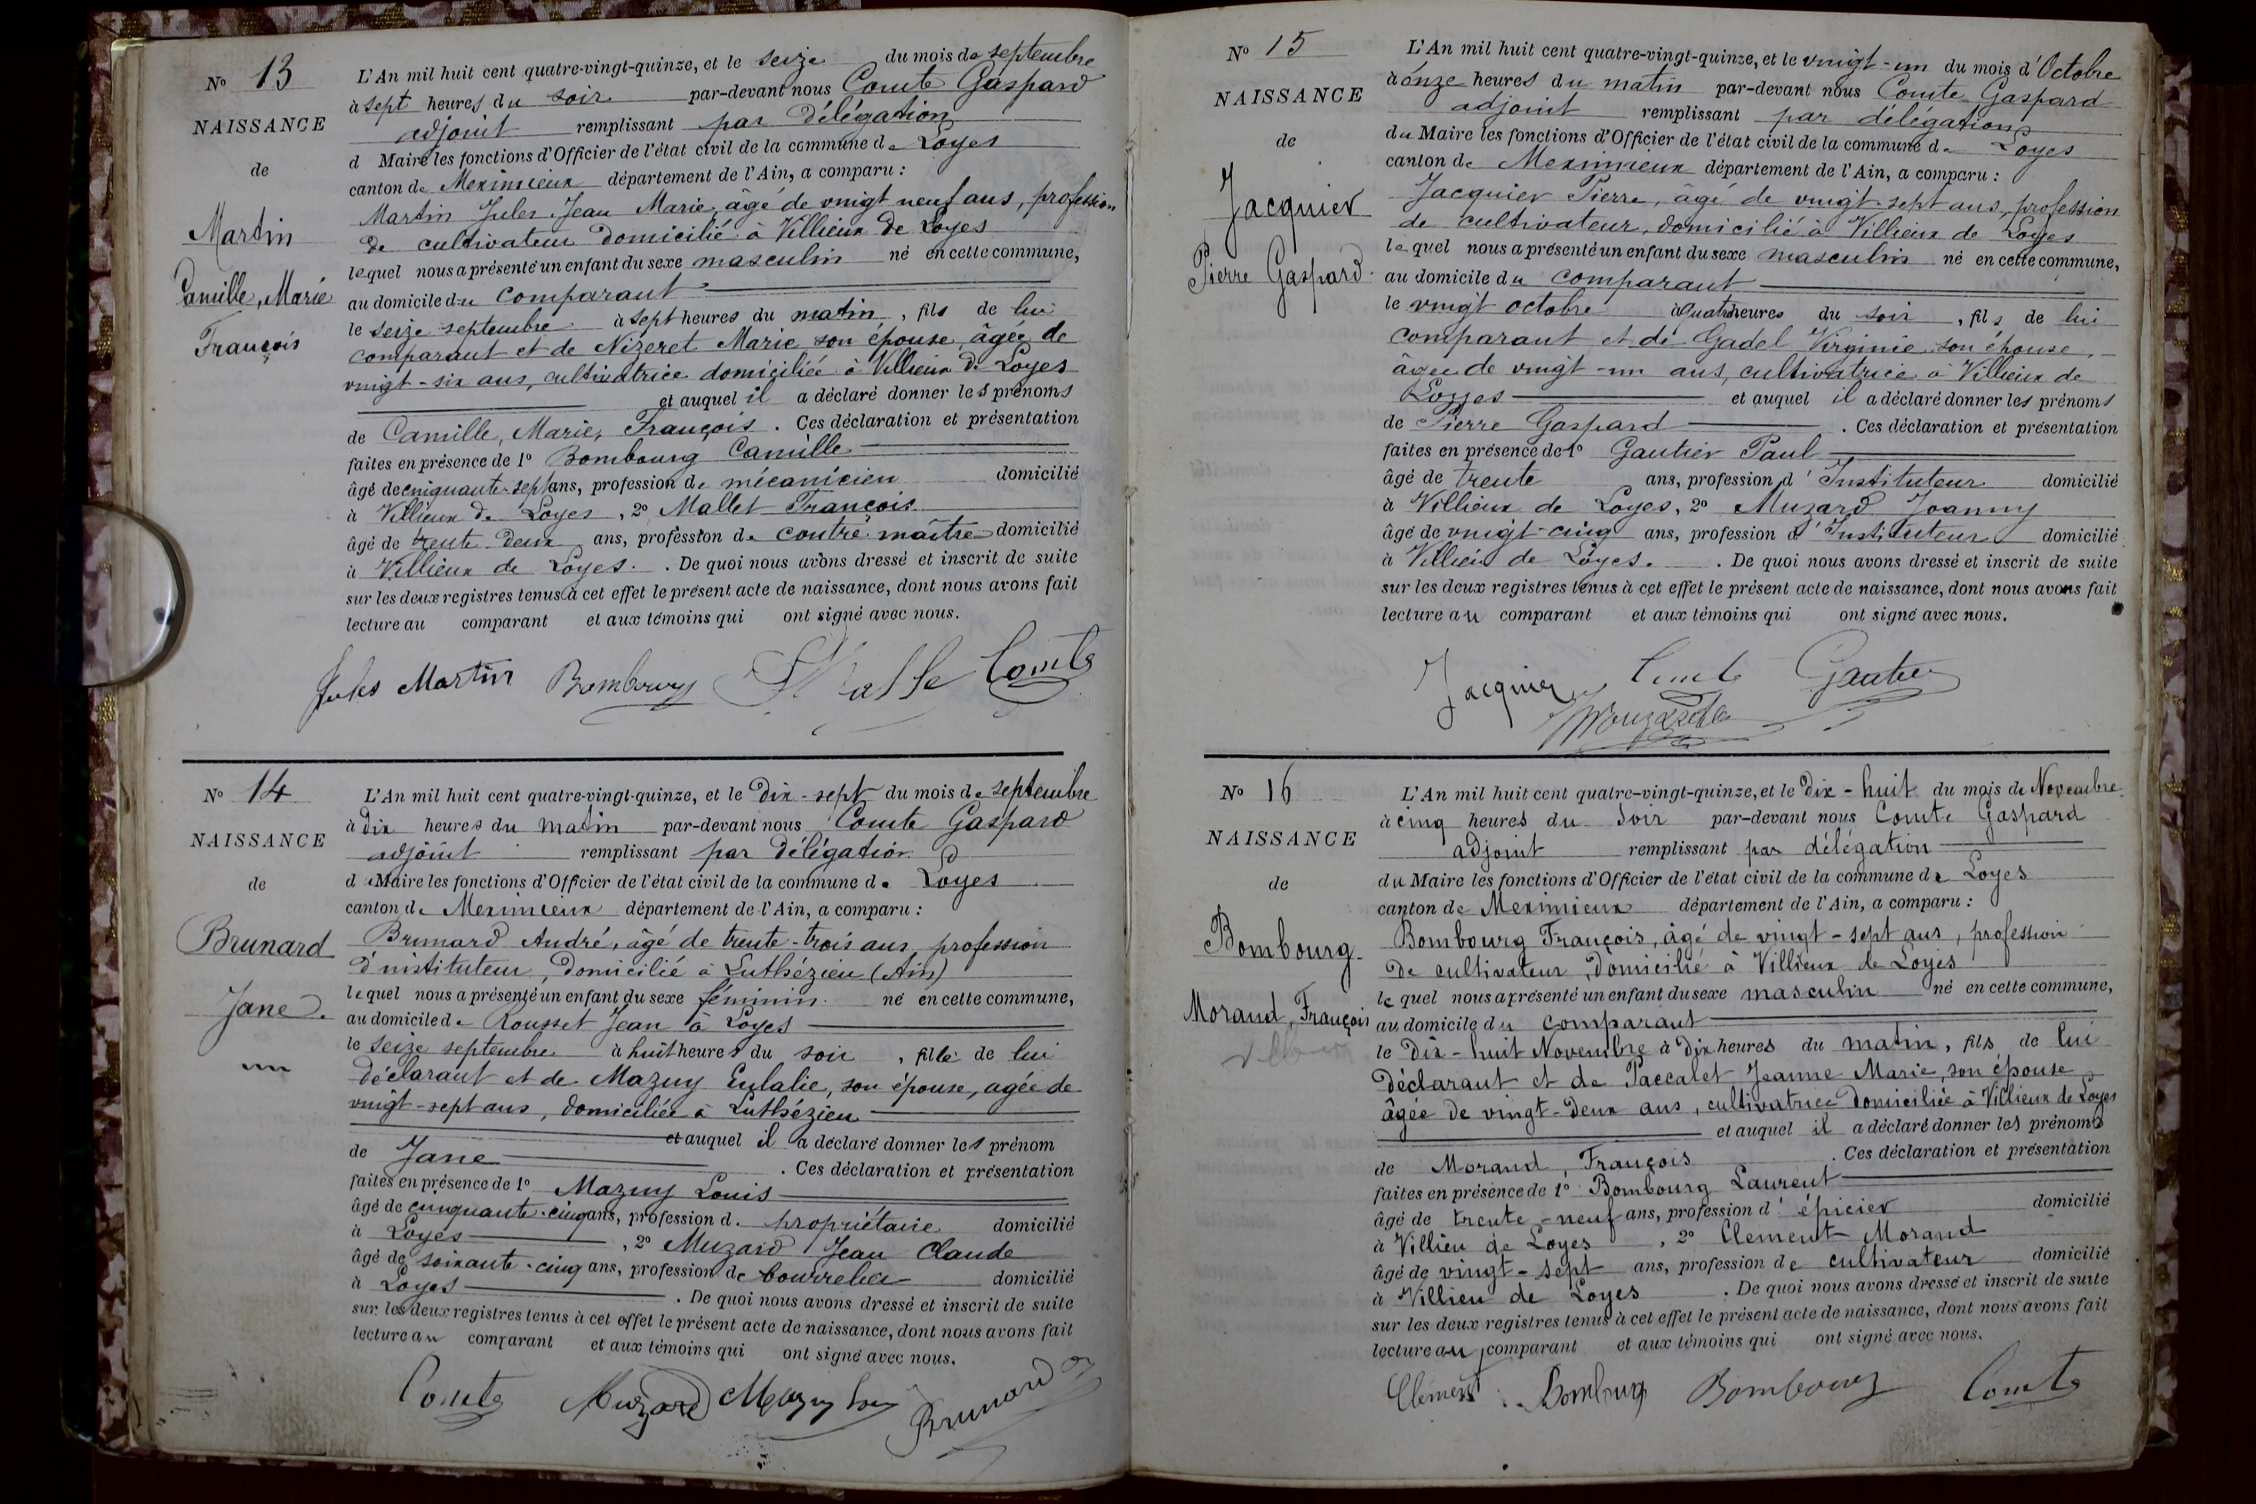 No 13
NAISSANCE
de
Martin
Camille, Marie
François
L'An mil huit cent quatre-vingt-quinze, et le seize du mois de septembre
à sept heures du soir par-devant nous Comte Gaspard
adjoint remplissant par délégation
d Maire les fonctions d'Officier de l'état civil de la commune de Loyes
canton de Meximieux département de l'Ain, a comparu :
Martin Jules Jean Marie, âgé de vingt neuf ans, profession
de cultivateur domicilié à Villieux de Loyes
lequel nous a présenté un enfant du sexe masculin né en cette commune,
au domicile du comparant
le seize septembre à sept heures du matin, fils de lui
comparant et de Nizeret Marie son épouse, âgée de
vingt-six ans, cultivatrice domiciliée à Villieux de Loyes
et auquel il a déclaré donner les prénoms
de Camille, Marie, François. Ces déclaration et présentation
faites en présence de 1o Bombourg Camille
âgé de cinquante-sept ans, profession de mécanicien domicilié
à Villieux de Loyes, 2o Mallet François
âgé de trente-deux ans, profession de contre-maître domicilié
à Villieux de Loyes. . De quoi nous avons dressé et inscrit de suite
sur les deux registres tenus à cet effet le présent acte de naissance, dont nous avons fait
lecture au comparant et aux témoins qui ont signé avec nous.
Jules Martin Bombourg Comte
No 14
NAISSANCE
de
Brunard
Jane
L'An mil huit cent quatre-vingt-quinze, et le dix-sept du mois de septembre
à dix heures du matin par-devant nous Comte Gaspard
adjoint remplissant par délégation
d Maire les fonctions d'Officier de l'état civil de la commune de Loyes
canton de Meximieux département de l'Ain, a comparu :
Brunard André, âgé de trente-trois ans, profession
d'instituteur, domicilié à Luthézieu (Ain)
lequel nous a présenté un enfant du sexe féminin né en cette commune,
au domicile de Rousset Jean à Loyes
le seize septembre à huit heures du soir, fille de lui
déclarant et de Mazuy Eulalie, son épouse, agée de
vingt-sept ans, domiciliée à Luthézieu
et auquel il a déclaré donner les prénom
de Jane . Ces déclaration et présentation
faites en présence de 1o Mazuy Louis
âgé de cinquante-cinq ans, profession d. propriétaire domicilié
à Loyes , 2o Muzard Jean Claude
âgé de soixante-cinq ans, profession de bourrelier domicilié
à Loyes . De quoi nous avons dressé et inscrit de suite
sur les deux registres tenus à cet effet le présent acte de naissance, dont nous avons fait
lecture au comparant et aux témoins qui ont signé avec nous.
Comte Muzard Mazuy Brunard
No 15
NAISSANCE
de
Jacquier
Pierre Gaspard
L'An mil huit cent quatre-vingt-quinze, et le vingt-un du mois d'Octobre
à onze heures du matin par-devant nous Comte Gaspard
adjoint remplissant par délégation
du Maire les fonctions d'Officier de l'état civil de la commune de Loyes
canton de Meximieux département de l'Ain, a comparu :
Jacquier Pierre, âgé de vingt-sept ans, profession
de cultivateur, domicilié à Villieux de Loyes
lequel nous a présenté un enfant du sexe masculin né en cette commune,
au domicile du comparant
le vingt octobre à quatre heures du soir, fils de lui
comparant et de Gadel Virginie son épouse,
âgée de vingt-un ans, cultivatrice à Villieux de
Loyes et auquel il a déclaré donner les prénoms
de Pierre Gaspard . Ces déclaration et présentation
faites en présence de 1o Gautier Paul
âgé de trente ans, profession d'Instituteur domicilié
à Villieux de Loyes, 2o Muzard Joanny
âgé de vingt-cinq ans, profession d'Instituteur domicilié
à Villieu de Loyes. . De quoi nous avons dressé et inscrit de suite
sur les deux registres tenus à cet effet le présent acte de naissance, dont nous avons fait
lecture au comparant et aux témoins qui ont signé avec nous.
Jacquier Comte Gautier
No 16
NAISSANCE
de
Bombourg
Morand, François
L'An mil huit cent quatre-vingt-quinze, et le dix-huit du mois de Novembre
à cinq heures du soir par-devant nous Comte Gaspard
adjoint remplissant par délégation
du Maire les fonctions d'Officier de l'état civil de la commune de Loyes
canton de Meximieux département de l'Ain, a comparu :
Bombourg François, âgé de vingt-sept ans, profession
de cultivateur, domicilié à Villieux de Loyes
lequel nous a présenté un enfant du sexe masculin né en cette commune,
au domicile du comparant
le dix-huit Novembre à dix heures du matin, fils de lui
déclarant et de Paccalet Jeanne Marie, son épouse
âgée de vingt-deux ans, cultivatrice domiciliée à Villieux de Loyes
et auquel il a déclaré donner les prénoms
de Morand, François . Ces déclaration et présentation
faites en présence de 1o Bombourg Laurent
âgé de trente-neuf ans, profession d'épicier domicilié
à Villieu de Loyes , 2o Clement Morand
âgé de vingt-sept ans, profession de cultivateur domicilié
à Villieu de Loyes . De quoi nous avons dressé et inscrit de suite
sur les deux registres tenus à cet effet le présent acte de naissance, dont nous avons fait
lecture au comparant et aux témoins qui ont signé avec nous.
Clément Bombourg Bombourg Comte